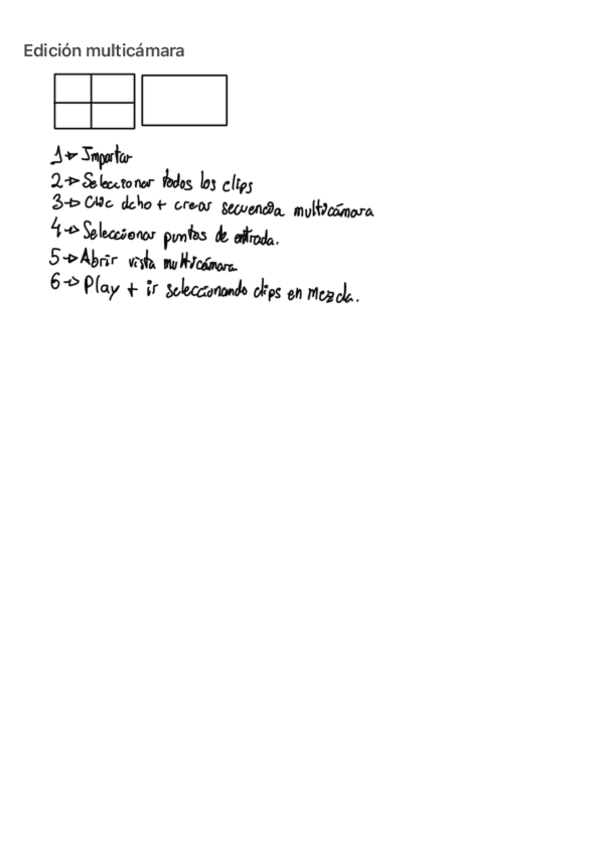 Edición multicámara
1→ Importar
2→ Seleccionar todos los clips
3→ Clic dcho + crear secuencia multicámara
4→ Seleccionar puntos de entrada.
5→ Abrir vista multicámara
6→ Play + ir seleccionando clips en mezcla.